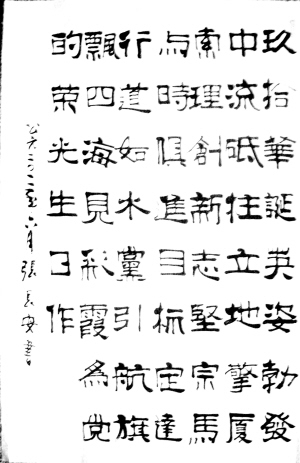 玖拾華誕英姿勃發
中流砥柱立地擎厦
索理創新志堅宗馬
與時俱進目标定達
行道如水黨引航旗
飄四海見彩霞為党
的荣光生日作
公元二〇一一年六月張長安書